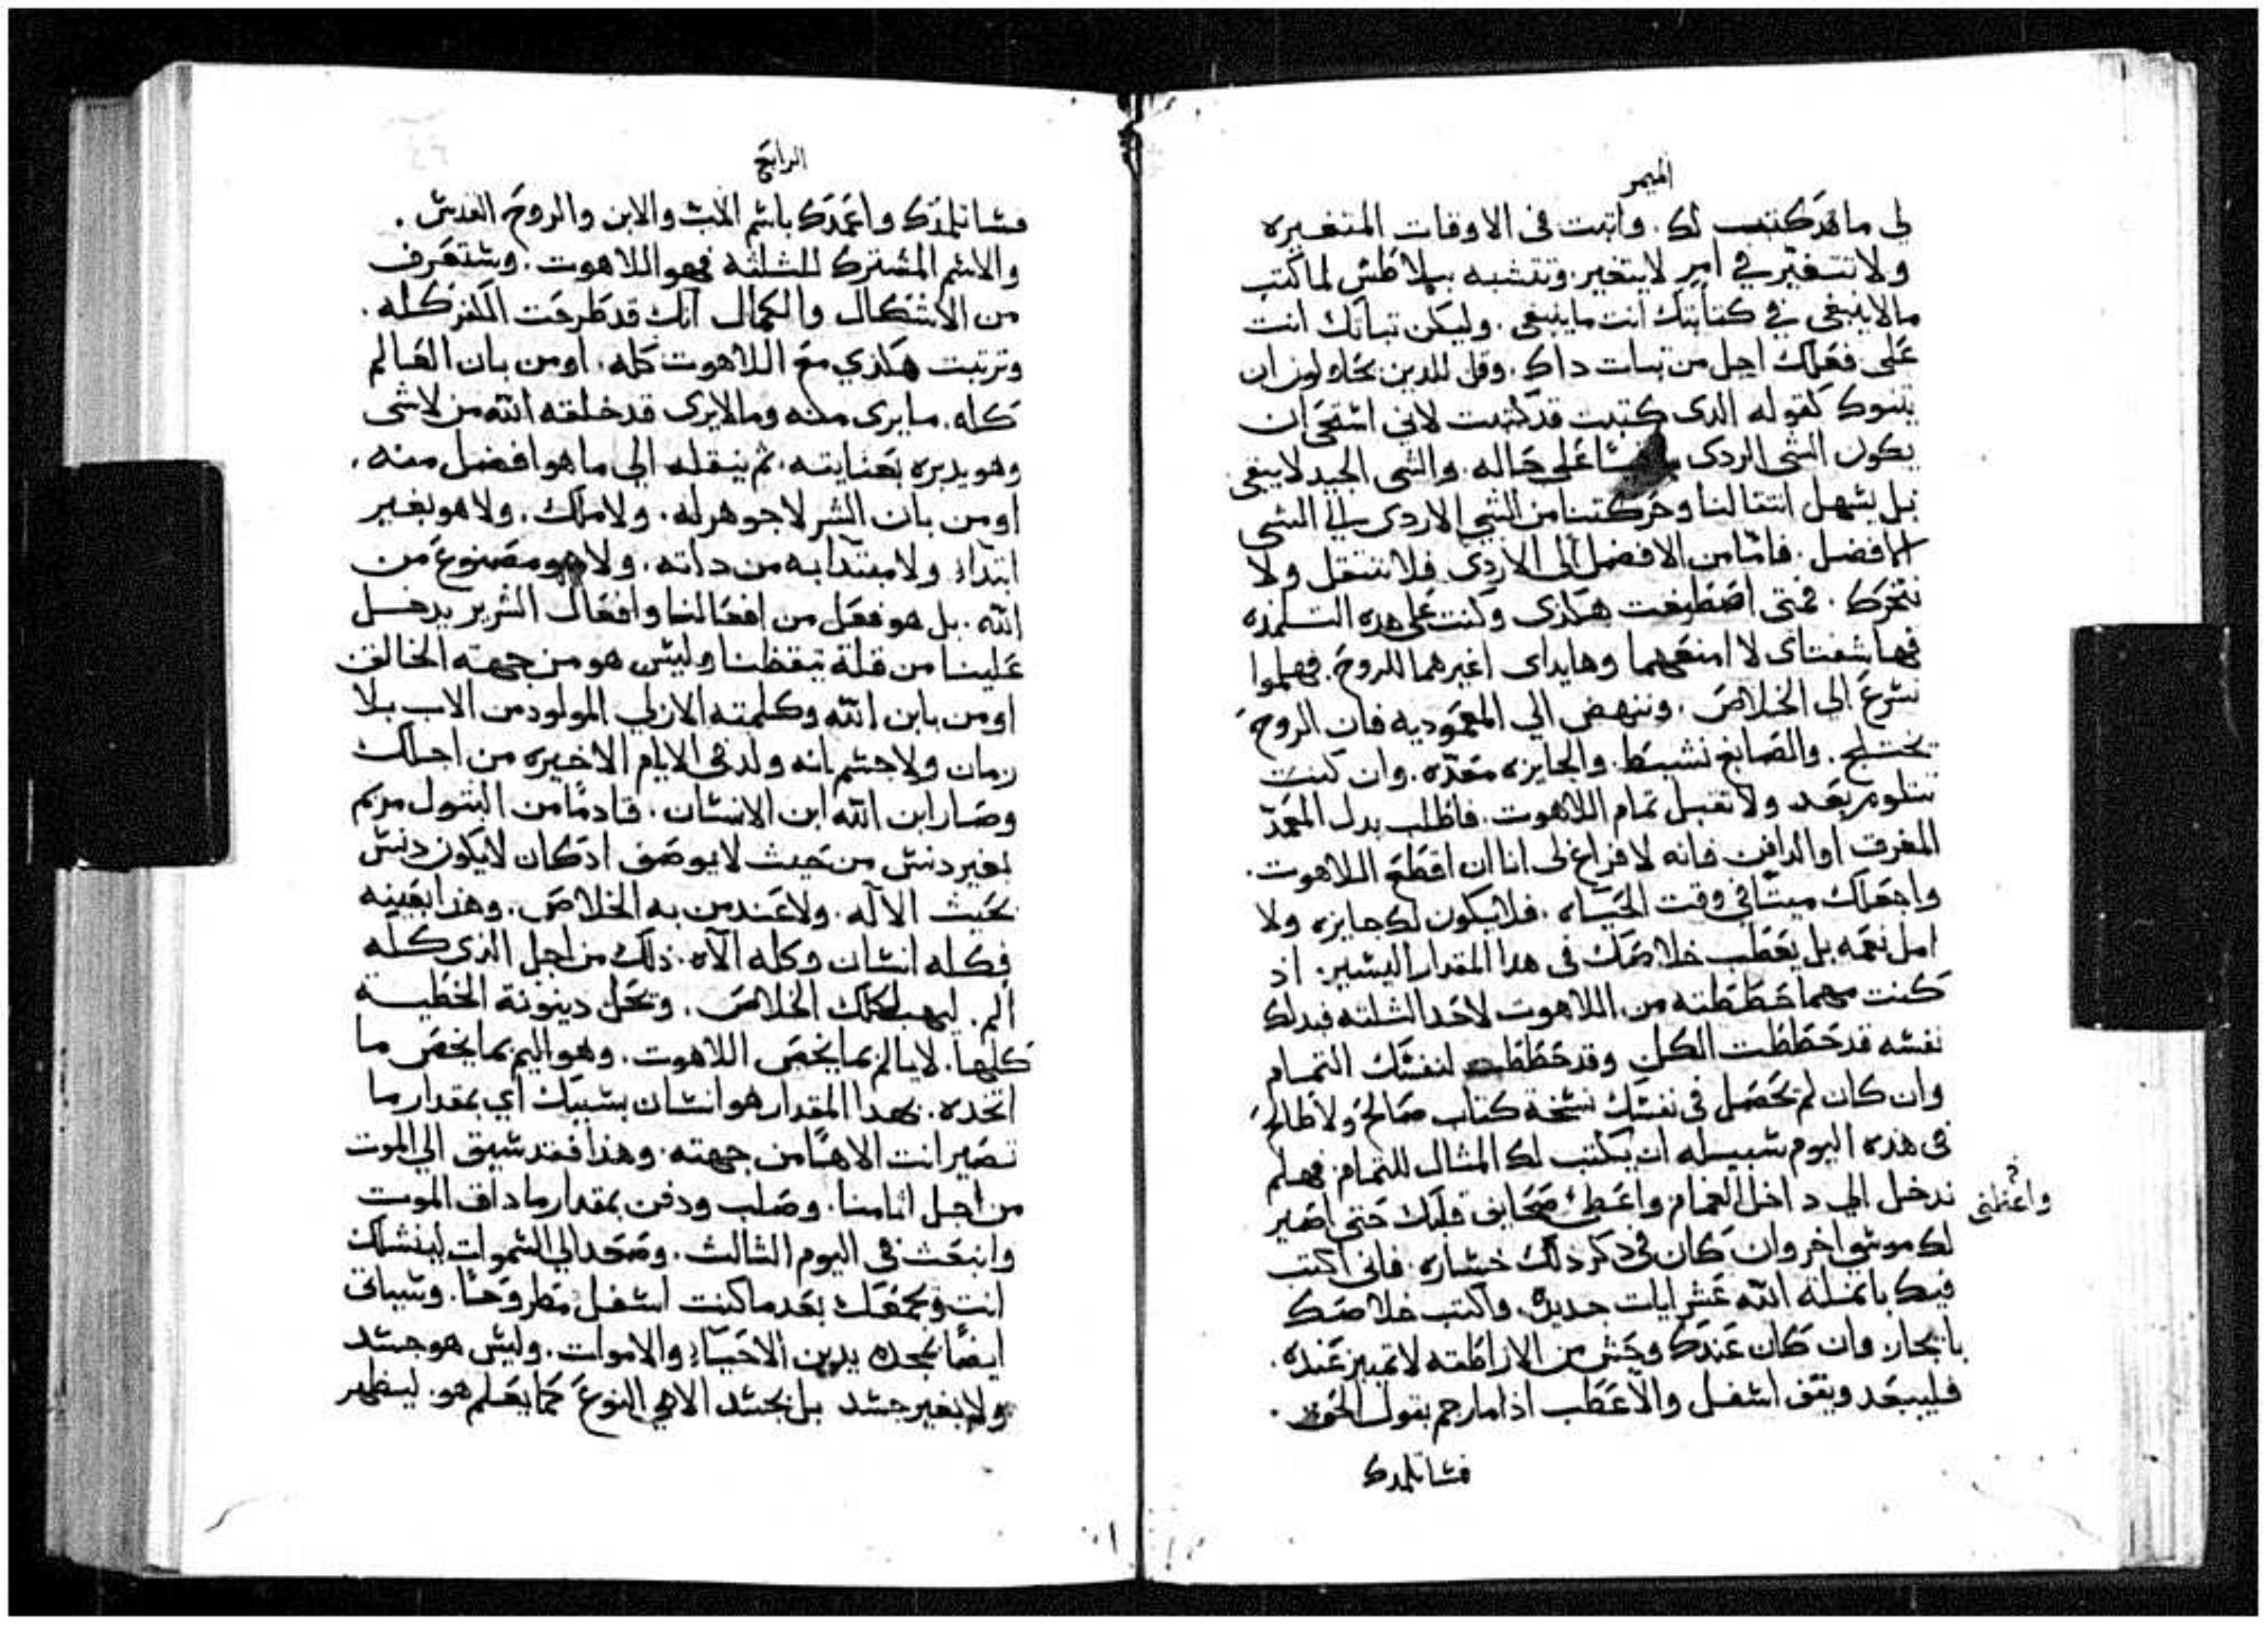 الميمر
لي ما قد كتبت لك. واتبت في الاوقات المتغيره
ولا تتغير في امر لا يتغير. وتتشبه ببلاطس لما كتب
مالا ينبغي في كتابتك انت ما ينبغي. وليكن تباتك انت
على فعلك اجل من تبات داك. وقل للدين يحاولون ان
يتنوك كقوله الدى كتبت قد كتبت لاني استحى ان
يكون الشي الردى على حاله. والشي الجيد لا يبقى.
بل يسهل انتقالنا وحركتنا من الشي الاردى الي الشي
الافضل. فاما من الافضل الى الاردى فلا ننتقل ولا
نتحرك. فمتى اصطبغت هكذى وكنت على هده التلمذه
فها شفتاى لا امنعهما وها يداى اعيرهما للروح. فهلموا
نسرع الى الخلاص. وننهض الي المعموديه فان الروح
يختلج. والصابغ نشيط. والجايزه معده. وان كنت
تتلوم بعد ولا تقبل تمام اللاهوت. فاطلب بدل المعمد
المغرق او الدافن فانه لا فراغ لى انا ان اقطع اللاهوت.
واجعلك ميتا في وقت الحياه. فلا يكون لك جايزه ولا
امل نعمه بل يعطب خلاصك في هدا المقدار اليسير. اذ
كنت مهما حططته من اللاهوت لاحد الثلثه فبدلك
نفسه قد حططت الكل وقد حططت لنفسك التمام
وان كان لم تحصل في نفسك نسخة كتاب صالح ولا طالح
في هده اليوم سبيله ان يكتب لك المثال للتمام فهلم
ندخل الي داخل الغمام واعطي صحايف قلبك حتى اصير
واعطني
لك موسي اخر وان كان في دكر دلك خساره. فاني اكتب
فيك بانمله الله عشر ايات جديده واكتب خلاصك
بايجاز وان كان عندك وحش من الاراطقه لا تمييز عنده.
فليبعد ويقف اسفل والا عطب اذا ما رجم بقول الحق.
فسا تلمدك
الرابع
فسا تلمذك واعمدك باسم الاب والابن والروح القدس.
والاسم المشترك للثلثه فهو اللاهوت. وستعرف
من الاشكال والكمال انك قد طرحت الكفر كله.
وترتبت هكذي مع اللاهوت كله. اومن بان العالم
كله. ما يرى منه وما لا يرى قد خلقه الله من لا شي
وهو يدبره بعنايته. ثم ينقله الي ما هو افضل منه.
اومن بان الشر لا جوهر له. ولا ملك. ولا هو بغير
ابتداء ولا مبتدا به من داته. ولا هو مصنوع من
الله. بل هو فعل من افعالنا وافعال الشرير يدخل
علينا من قلة تيقظنا وليس هو من جهته الخالق
اومن بابن الله وكلمته الازلي المولود من الاب بلا
زمان ولا جسم انه ولد في الايام الاخيره من اجلك
وصار ابن الله ابن الانسان. قادما من البتول مريم
بغير دنس من حيث لا يوصف اد كان لا يكون دنس
بحيث الاله. ولا عند من به الخلاص. وهذا بعينه
فكله انسان وكله الاه. ذلك من اجل الذى كله
الم. ليهب لكلك الخلاص. وتحل دينونة الخطيه
كلها. لا يالم بما يخص اللاهوت. وهو اليم بما يخص ما
اتخده. بهدا المقدار هو انسان بسببك اي بمقدار ما
تصير انت الاها من جهته. وهذا فقد سيق الي الموت
من اجل اثامنا. وصلب ودفن بمقدار ما داق الموت
وانبعث في اليوم الثالث. وصعد الي السموات لينشلك
انت ويجمعك بعد ما كنت اسفل مطروحا. وسياتي
ايضا بمجده يدين الاحياء والاموات. وليس هو جسد
ولا بغير جسد بل بجسد الاهي النوع كما يعلم هو. ليظهر